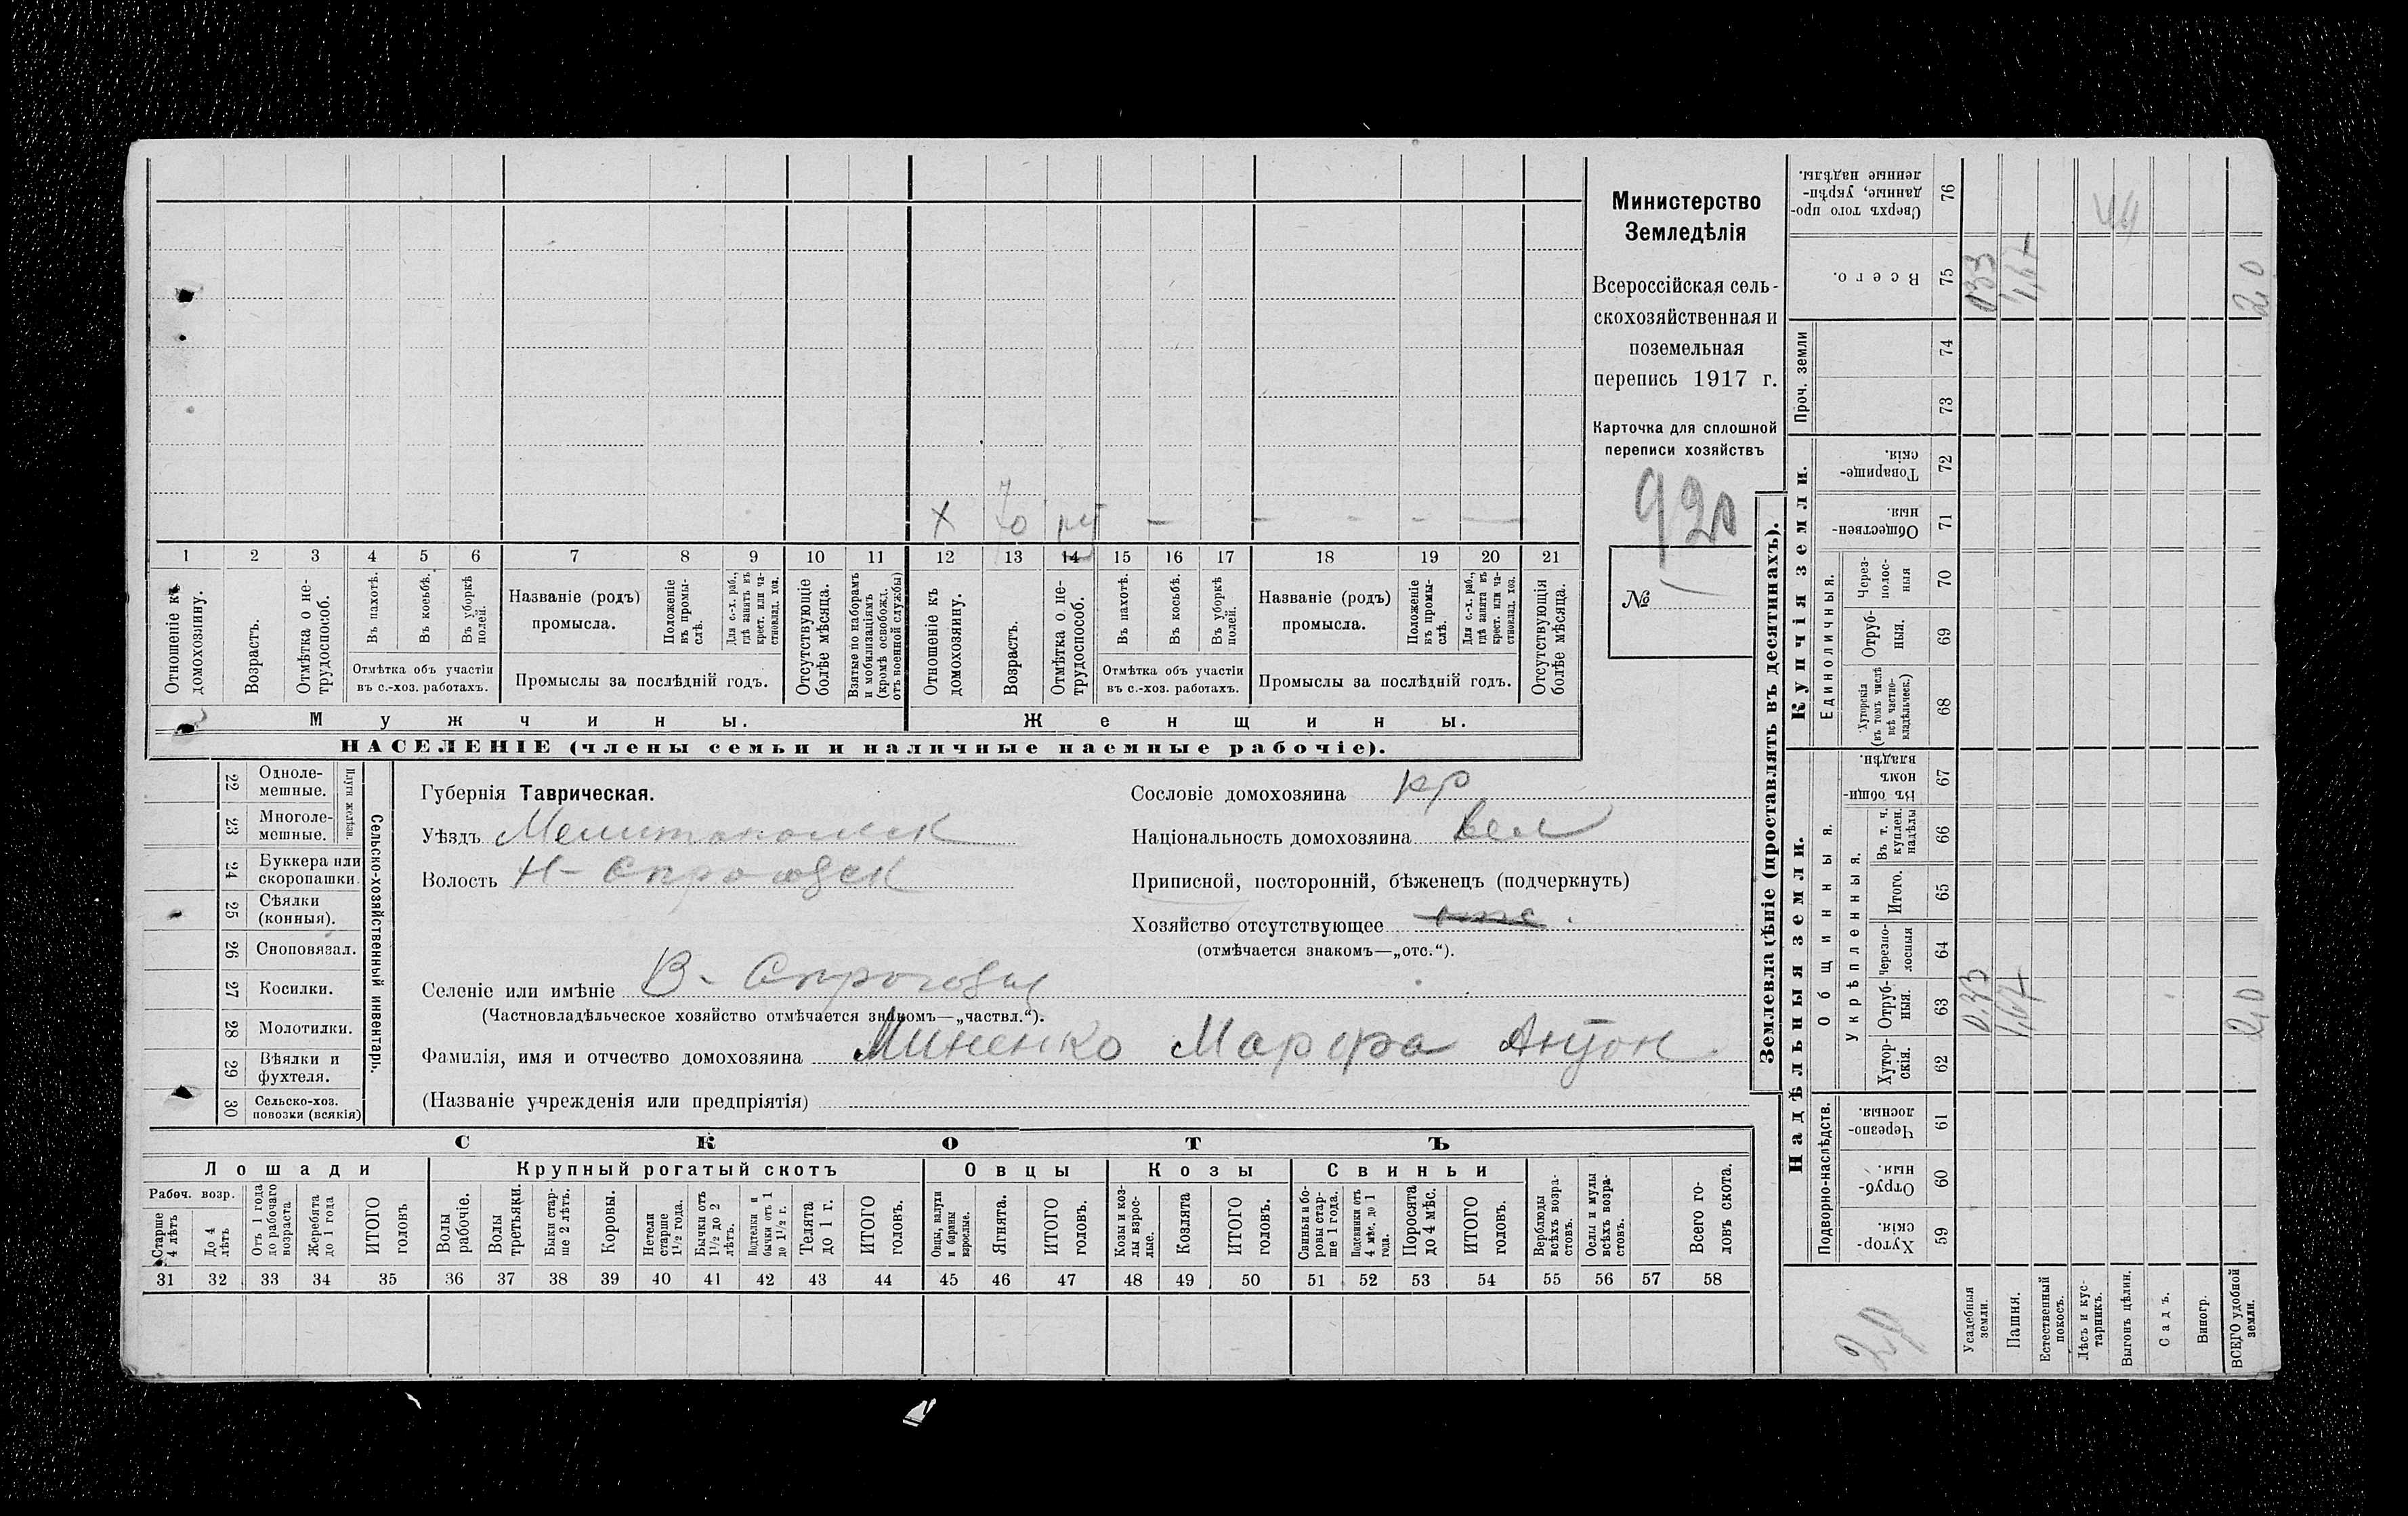 Министерство
Земледѣлія
Всероссійская сель-
скохозяйственная и
поземельная
перепись 1917 г.
Карточка для сплошной
переписи хозяйствъ
920
№
× 70 — — — — —
1 2 3 4 5 6 7 8 9 10 11 12 13 14 15 16 17 18 19 20 21
Отношеніе къ домохозяину.
Возрастъ.
Отмѣтка о не-трудоспособ.
Въ пахотѣ.
Въ косьбѣ.
Въ уборкѣ полей.
Отмѣтка объ участіи
въ с.-хоз. работахъ.
Названіе (родъ)
промысла.
Положеніе въ промы-слѣ.
Для с.-х. раб., гдѣ занятъ въ крест. или ча-стновлад. хоз.
Промыслы за послѣдній годъ.
Отсутствующіе болѣе мѣсяца.
Взятые по наборамъ и мобилизаціямъ (кромѣ освобожд. отъ военной службы)
Отношеніе къ домохозяину.
Возрастъ.
Отмѣтка о не-трудоспособ.
Въ пахотѣ.
Въ косьбѣ.
Въ уборкѣ полей.
Отмѣтка объ участіи
въ с.-хоз. работахъ.
Названіе (родъ)
промысла.
Положеніе въ промы-слѣ.
Для с.-х. раб., гдѣ занята въ крест. или ча-стновлад. хоз.
Промыслы за послѣдній годъ.
Отсутствующія болѣе мѣсяца.
Мужчины. Женщины.
НАСЕЛЕНІЕ (члены семьи и наличные наемные рабочіе).
22 Одноле-мешные.
23 Многоле-мешные.
Плуги желѣзн.
24 Буккера или скоропашки.
25 Сѣялки (конныя).
26 Сноповязал.
27 Косилки.
28 Молотилки.
29 Вѣялки и фухтеля.
30 Сельско-хоз. повозки (всякія)
Сельско-хозяйственный инвентарь.
Губернія Таврическая.
Уѣздъ Мелитопольск
Волость Н-
Сословіе домохозяина кр
Національность домохозяина вел
Приписной, посторонній, бѣженецъ (подчеркнуть)
Хозяйство отсутствующее отс.
(отмѣчается знакомъ—„отс.“).
Селеніе или имѣніе В-
(Частновладѣльческое хозяйство отмѣчается знакомъ—„частвл.“).
Фамилія, имя и отчество домохозяина Миненко Марфа Антон
(Названіе учрежденія или предпріятія)
СКОТЪ
Лошади Крупный рогатый скотъ Овцы Козы Свиньи
Рабоч. возр.
Старше 4 лѣтъ
До 4 лѣтъ
Отъ 1 года до рабочаго возраста
Жеребята до 1 года
ИТОГО головъ
Волы рабочіе.
Волы третьяки.
Быки стар-ше 2 лѣтъ.
Коровы.
Нетели старше 1½ года.
Бычки отъ 1½ до 2 лѣтъ.
Подтелки и бычки отъ 1 до 1½ г.
Телята до 1 г.
ИТОГО головъ.
Овцы, валухи и бараны взрослые.
Ягнята.
ИТОГО головъ.
Козы и коз-лы взрос-лые.
Козлята
ИТОГО головъ.
Свиньи и бо-ровы стар-ше 1 года.
Подсвинки отъ 4 мѣс. до 1 года.
Поросята до 4 мѣс.
ИТОГО головъ.
Верблюды всѣхъ возра-стовъ.
Ослы и мулы всѣхъ возра-стовъ.
Всего го-ловъ скота.
31 32 33 34 35 36 37 38 39 40 41 42 43 44 45 46 47 48 49 50 51 52 53 54 55 56 57 58
Землевладѣніе (проставлять въ десятинахъ).
Купчія земли.
Надѣльныя земли.
Сверхъ того про-данные, укрѣп-ленные надѣлы. 76
Всего. 75 0.33
Проч. земли 74 73
Товарище-скія. 72
Обществен-ныя. 71
Единоличныя.
Через-полос-ныя 70
Отруб-ныя. 69
Хуторскія (въ томъ числѣ всѣ частно-владѣльческ.) 68
Общинныя.
Въ общи-номъ владѣн. 67
Укрѣпленныя.
Въ т. ч. куплен. надѣлы 66
Итого. 65
Черезпо-лосныя 64
Отруб-ныя. 63 0.33 1,67 2,0
Хутор-скія. 62
Подворно-наслѣдств.
Черезпо-лосныя. 61
Отруб-ныя. 60
Хутор-скія. 59
Усадебныя земли.
Пашня.
Естественный покосъ.
Лѣсъ и кус-тарникъ.
Выгонъ цѣлин.
Садъ.
Виногр.
ВСЕГО удобной земли.
2,0